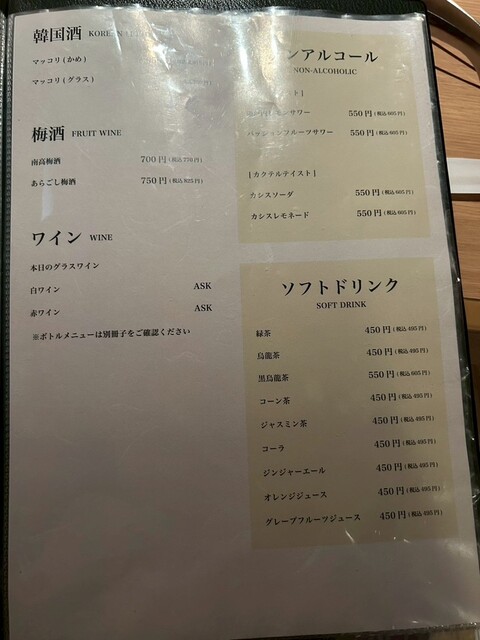 韓国酒 KOREAN
マッコリ(かめ)
マッコリ(グラス)
梅酒 FRUIT WINE
南高梅酒 700円(税込770円)
あらごし梅酒 750円(税込825円)
ワイン WINE
本日のグラスワイン
白ワイン ASK
赤ワイン ASK
※ボトルメニューは別冊子をご確認ください
ンアルコール
NON-ALCOHOLIC
スト|
モンサワー 550円(税込605円)
パッションフルーツサワー 550円(税込605円)
|カクテルテイスト|
カシスソーダ 550円(税込605円)
カシスレモネード 550円(税込605円)
ソフトドリンク
SOFT DRINK
緑茶 450円(税込495円)
烏龍茶 450円(税込495円)
黒烏龍茶 550円(税込605円)
コーン茶 450円(税込495円)
ジャスミン茶 450円(税込495円)
コーラ 450円(税込495円)
ジンジャーエール 450円(税込495円)
オレンジジュース 450円(税込495円)
グレープフルーツジュース 450円(税込495円)